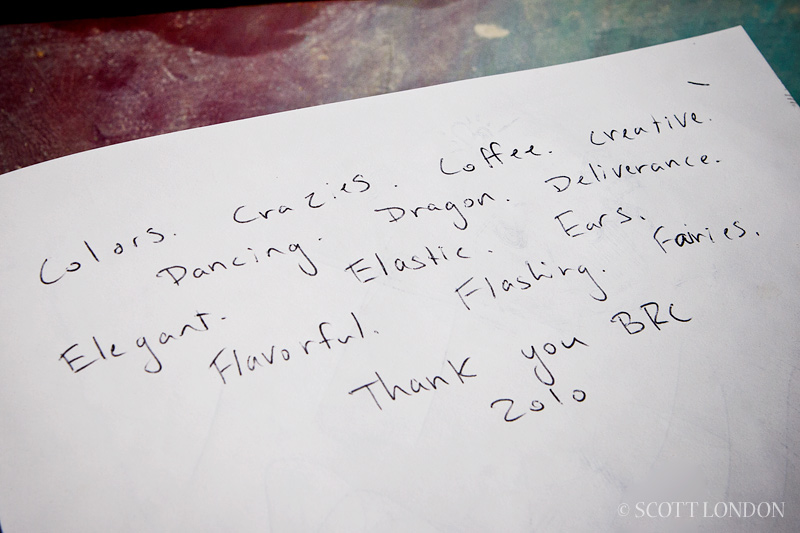 Colors. Crazies. Coffee. Creative.
Dancing. Dragon. Deliverance.
Elegant. Elastic. Ears.
Flavorful. Flashing. Fairies.
Thank you BRC
2010
© SCOTT LONDON